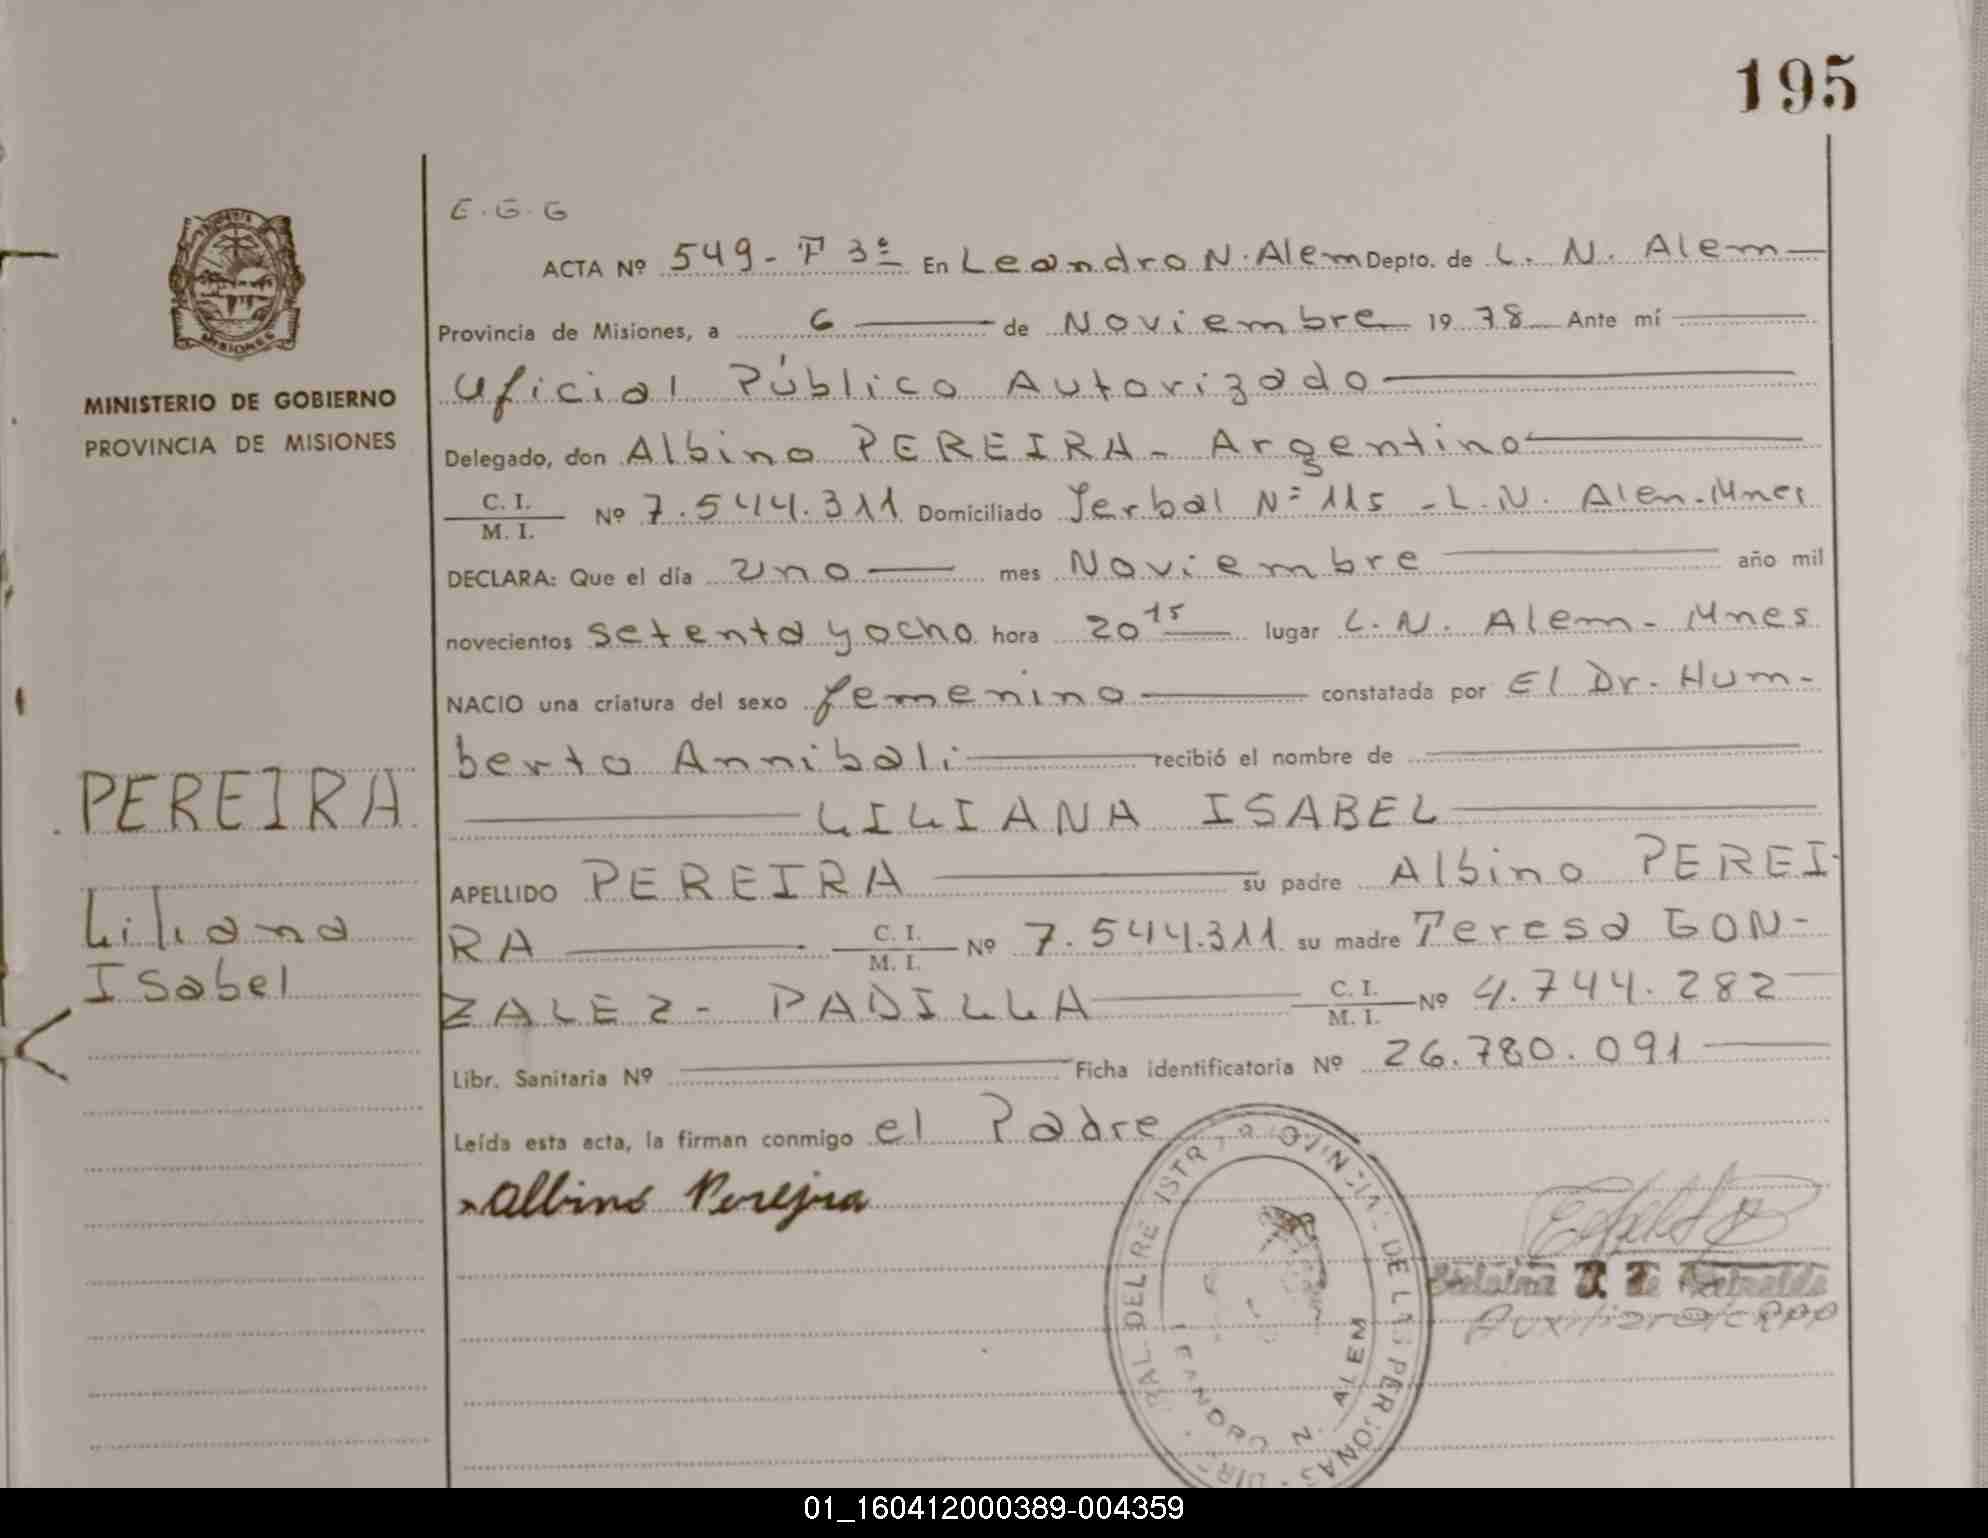 195
E.G.G
ACTA Nº 549 - T 3º En Leandro N. Alem Depto. de L. N. Alem
Provincia de Misiones, a 6 de Noviembre 1978 Ante mí
Oficial Público Autorizado
MINISTERIO DE GOBIERNO
PROVINCIA DE MISIONES
Delegado, don Albino PEREIRA - Argentino
C. I.
M. I. Nº 7.544.311 Domiciliado Yerbal Nº 115 - L.N. Alen - Mnes
DECLARA: Que el día uno mes Noviembre año mil
novecientos setenta y ocho hora 20 15 lugar L. N. Alem - Mnes
NACIO una criatura del sexo femenino constatada por El Dr. Hum-
berto Annibali recibió el nombre de
LILIANA ISABEL
PEREIRA
Liliana
Isabel
APELLIDO PEREIRA su padre Albino PEREI-
RA C. I. M. I. Nº 7.544.311 su madre Teresa GON-
ZALEZ - PADILLA C. I. M. I. Nº 4.744.282
Libr. Sanitaria Nº Ficha identificatoria Nº 26.780.091
Leída esta acta, la firman conmigo el Padre
Albino Pereyra
LEANDRO N. ALEM
01_160412000389-004359